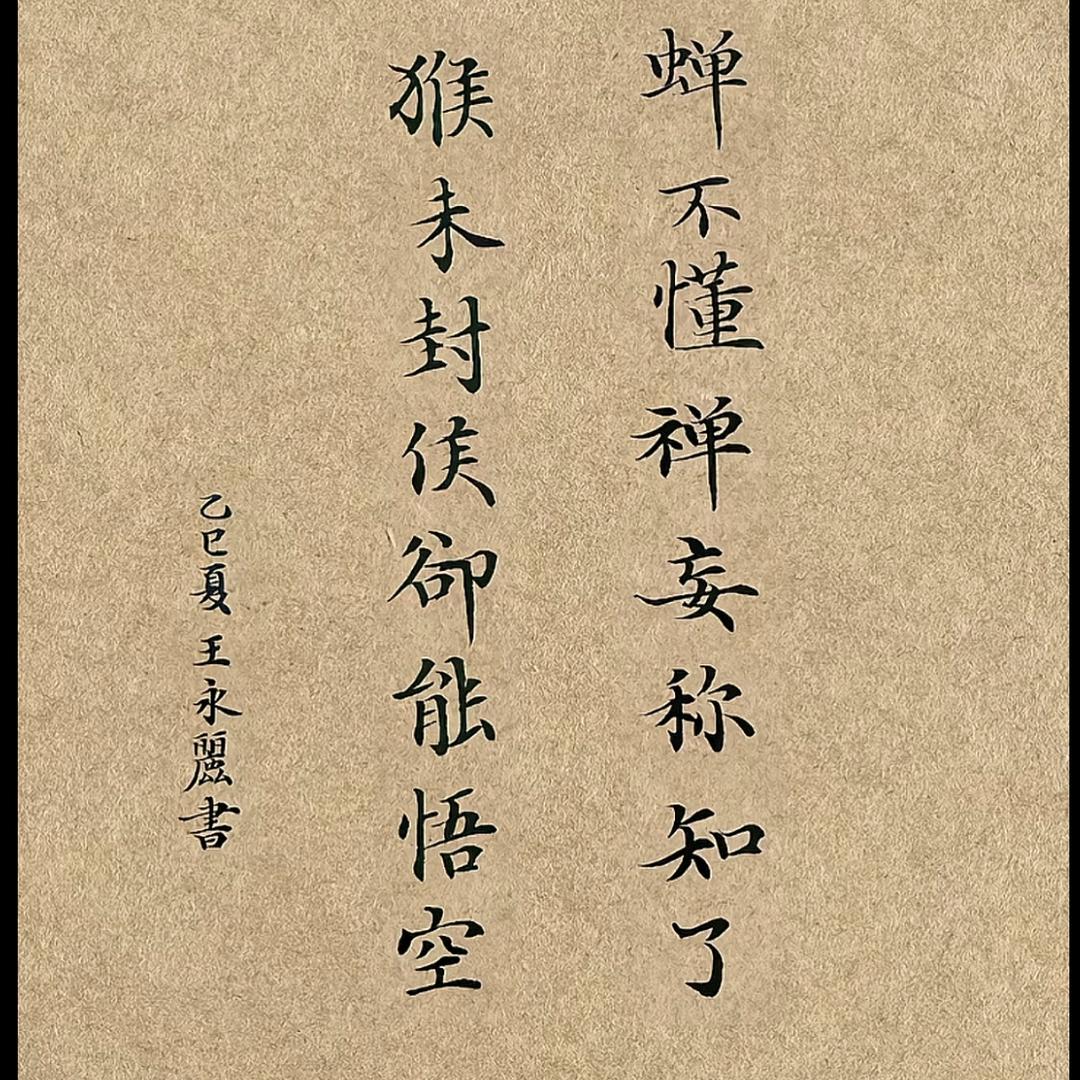 蝉不懂禅妄称知了
猴未封侯卻能悟空
乙巳夏王永麗書